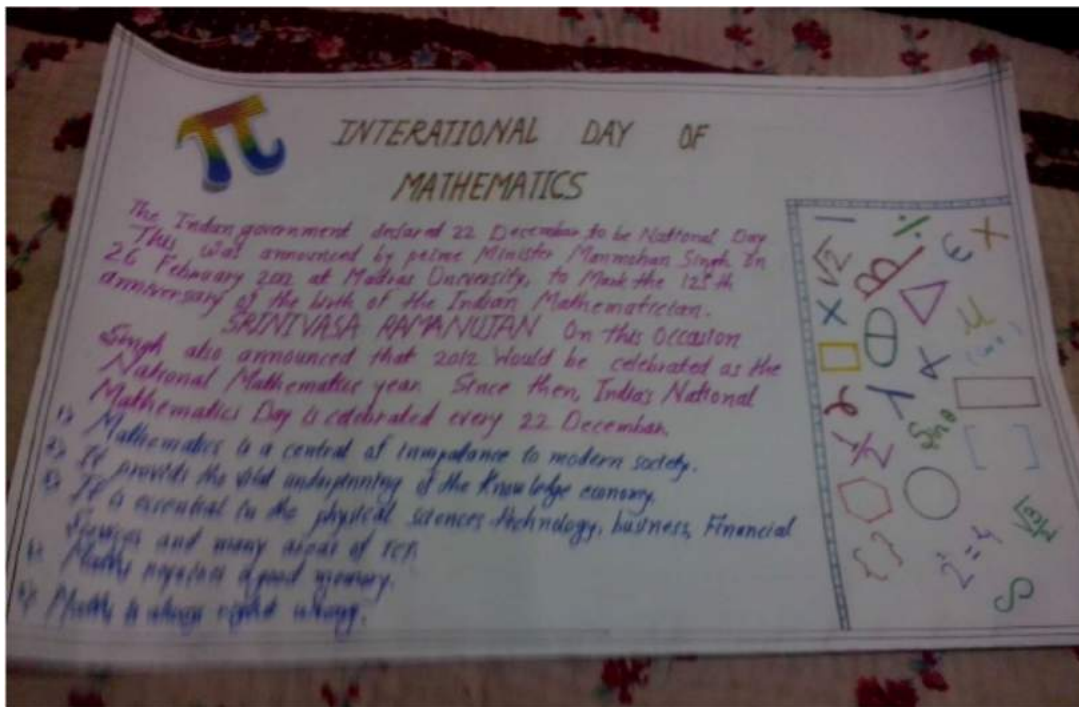 π
INTERATIONAL DAY OF
MATHEMATICS
The Indian government declared 22 December to be National Day
This was announced by prime Minister Manmohan Singh on
26 February 2012 at Madras University, to Mark the 125th
anniversary of the birth of the Indian Mathematician.
SRINIVASA RAMANUJAN On this Occasion
Singh also announced that 2012 Would be celebrated as the
National Mathematics year. Since then, India's National
Mathematics Day is celebrated every 22 December.
1) Mathematics is a central of importance to modern society.
2) It provides the vital underpinning of the Knowledge economy.
3) It is essential in the physical sciences technology, business, Financial
Services and many areas of ICT.
4) Maths a good memory.
5) Maths is always right
− ÷ ε ×
√2 B
× μ
x
Sin θ
1/2 [ ]
{ } 2²=4
S